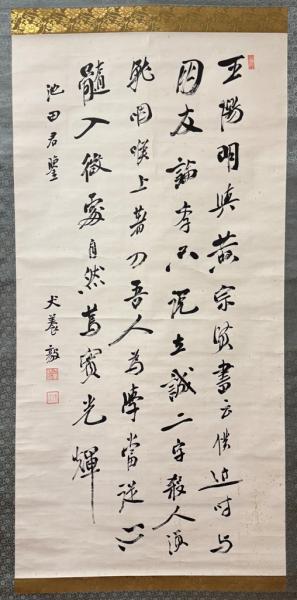 王陽明與黃宗賢書云僕近时与
朋友論学只説立誠二字殺人須
就咽喉上著刀吾人為學當從心
髓入微處自然篤實光輝
池田君鑒
犬養毅